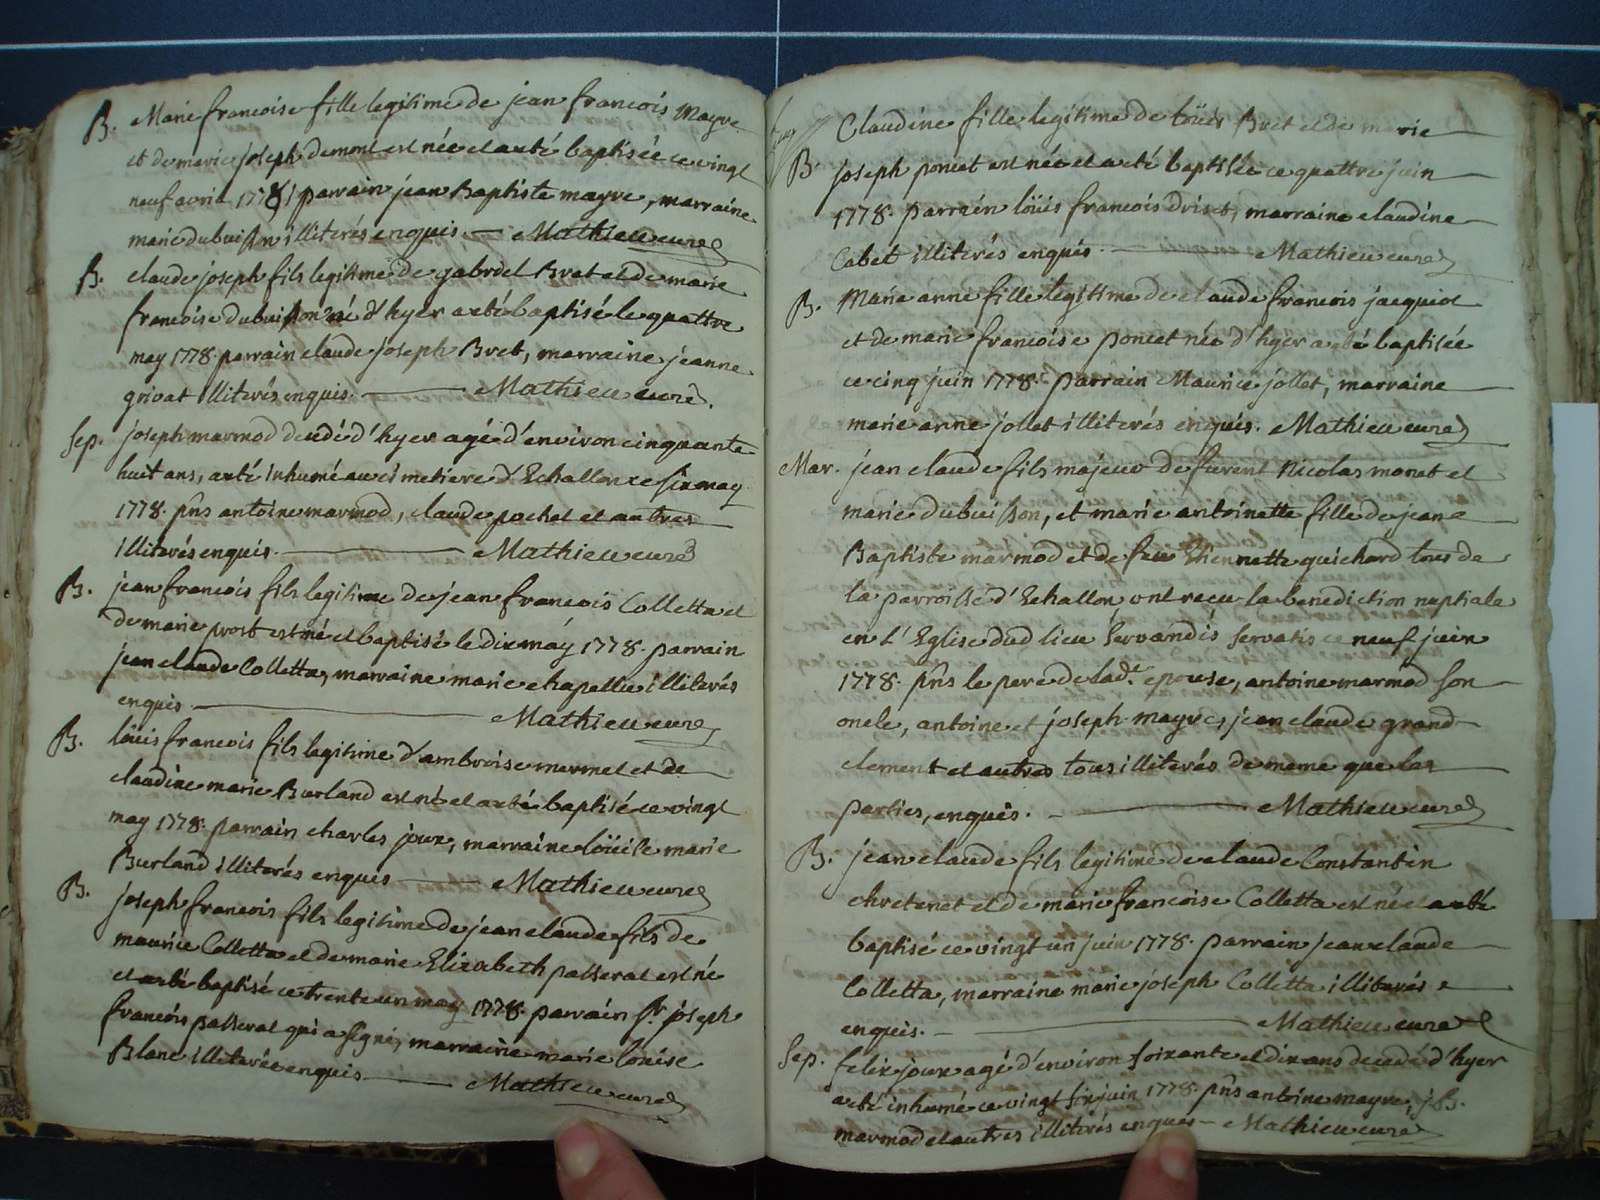 B. Marie francoise fille legitime de jean francois Mayre
et de marie joseph demont est née et a eté baptisée ce vingt
neuf avril 1778 parrain jean Baptiste mayre, marraine
marie dubuisson illiterés enquis. Mathieu curé
B. claude joseph fils legitime de gabriel Bret et de marie
francoise dubuisson né d'hyer a eté baptisé le quattre
may 1778. parrain claude joseph Bret, marraine jeanne
grivat illiterés enquis. Mathieu curé.
Sep. joseph marmod decedé d'hyer agé d'environ cinquante
huit ans, a eté inhumé au cimetiere d'Echallon ce six may
1778. pns antoine marmod, claude pochet et autres
illiterés enquis. Mathieu curé
B. jean francois fils legitime de jean francois Colletta et
de marie prost est né et baptisé le dix may 1778. parrain
jean claude Colletta, marraine marie chapellu illiterés
enquis. Mathieu curé
B. loüis francois fils legitime d'ambroise mermet et de
claudine marie Burland est né et a eté baptisé ce vingt
may 1778. parrain charles joux, marraine loüise marie
Burland illiterés enquis Mathieu curé
B. joseph francois fils legitime de jean claude fils de
maurice Colletta et de marie Elizabeth passerat est né
et a eté baptisé ce trente un may 1778. parrain Sr. joseph
francois passerat qui a signé, marraine marie loüise
Blanc illiterée enquis Mathieu curé
Claudine fille legitime de loüis Bret et de marie
B. joseph poncet est née et a eté baptisée ce quattre juin
1778. parrain loüis francois driset, marraine claudine
Cabet illiterés enquis. Mathieu curé
B. Marie anne fille legitime de claude francois jacquiot
et de marie francoise poncet née d'hyer a eté baptisée
ce cinq juin 1778. parrain Maurice jollet, marraine
marie anne jollet illiterés enquis. Mathieu curé
Mar. jean claude fils majeur de furent Nicolas monet et
marie dubuisson, et marie antoinette fille de jean
Baptiste marmod et de feu Etiennette quichard tous de
la parroisse d'Echallon ont recu la benediction nuptiale
en l'Eglise dud lieu servandis servatis ce neuf juin
1778. pns le pere de lad.e epouse, antoine marmod son
oncle, antoine et joseph mayres, jean claude grand
clement et autres tous illiterés de meme que les
parties, enquis. Mathieu curé
B. jean claude fils legitime de claude Constantin
chretenet et de marie francoise Colletta est né et a eté
baptisé ce vingt un juin 1778. parrain jean claude
Colletta, marraine marie joseph Colletta illiterés
enquis. Mathieu curé
Sep. felix joux agé d'environ soixante et dix ans decedé d'hyer
a eté inhumé ce vingt six juin 1778. pns antoine mayre, j. B.
marmod et autres illiterés enquis Mathieu curé